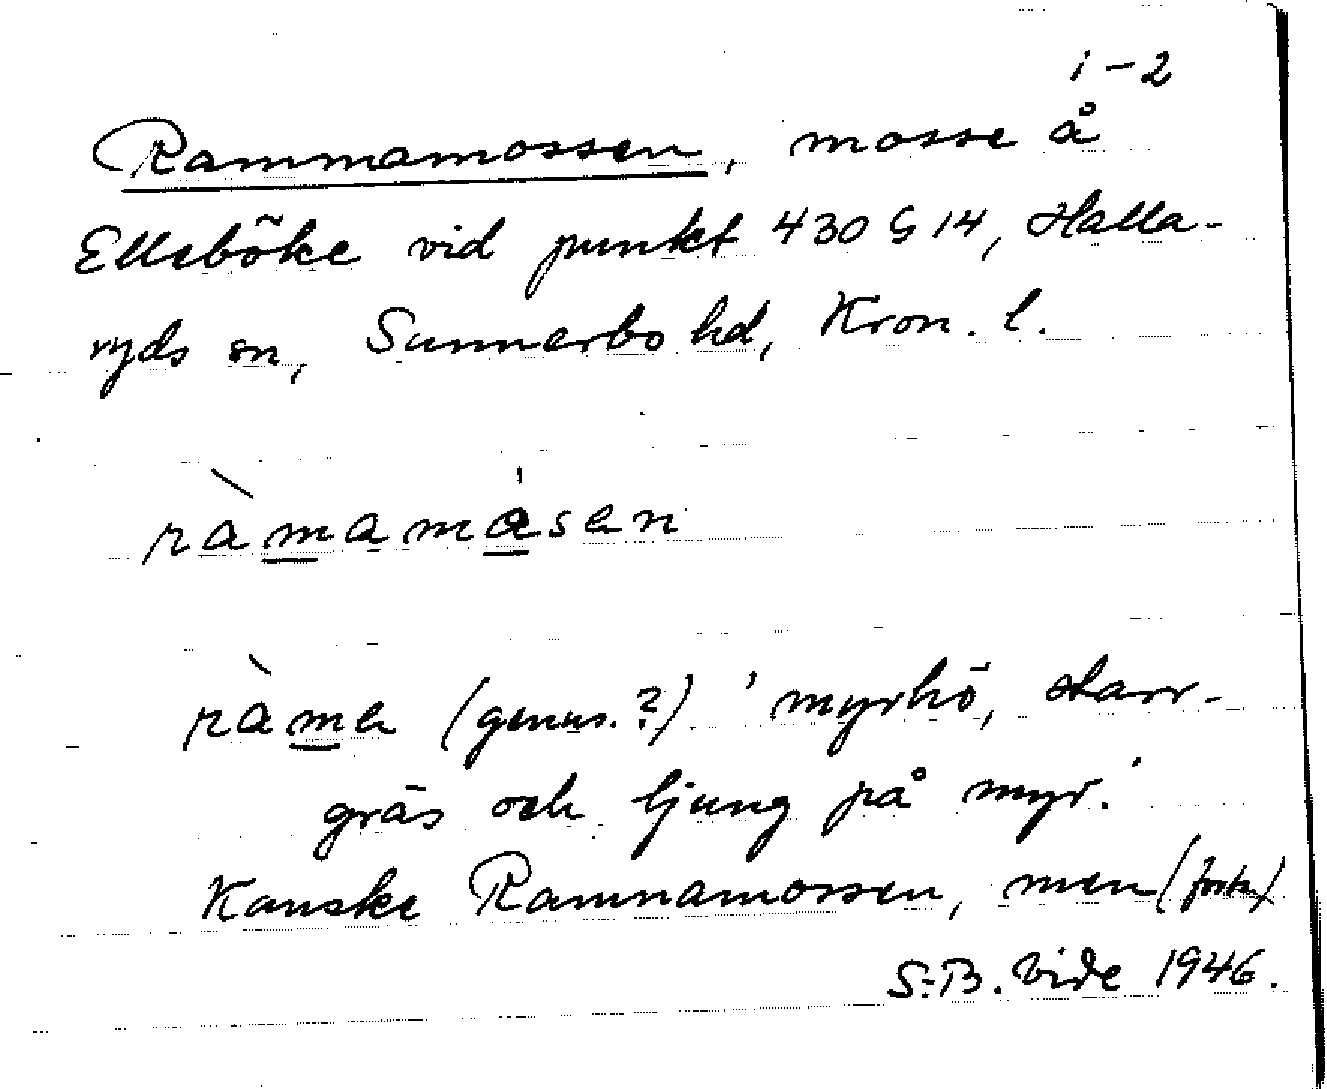 1-2
Rammamossen, mosse å
Ellsböke vid punkt 430 G 14, Halla-
ryds sn, Sunnerbo hd, Kron. l.
ràmamåsen
ràma (genus.?) 'myrhö, starr-
gräs och ljung på myr.'
Kanske Ramnamossen, men (forts.)
S.-B. Vide 1946.